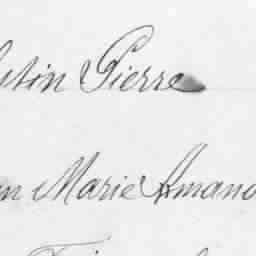 stin Pierre
n Marie Amand